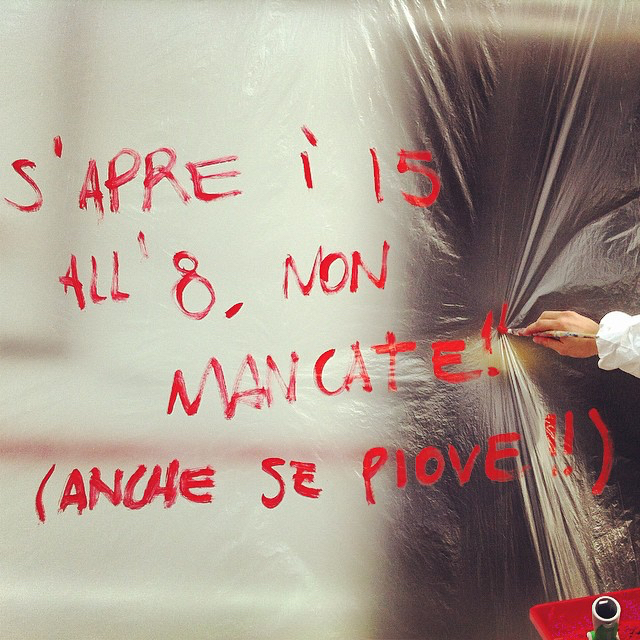 S'APRE Ì 15
ALL' 8, NON
MANCATE!!
(ANCHE SE PIOVE!!)